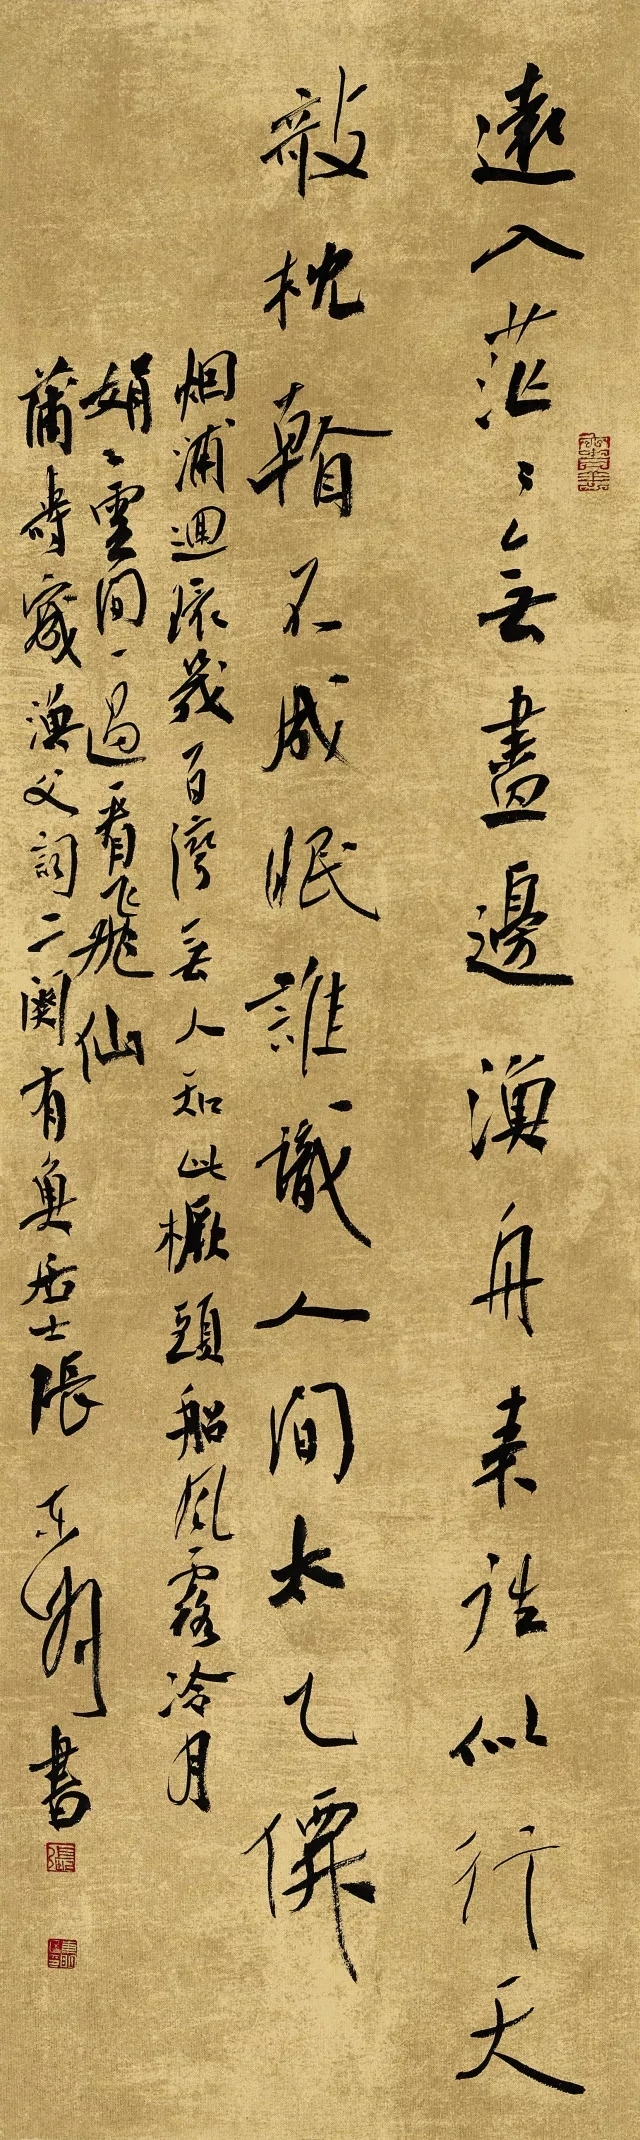 遠入茫〻無盡邊漁舟來往似行天
敧枕䩞不成眠誰識人間太乙僊
烟浦迴環幾百灣無人知此橛頭船風露冷月
娟〻雲間一過看飛仙
蒲壽宬漁父詞二闋有魚居士張東明書